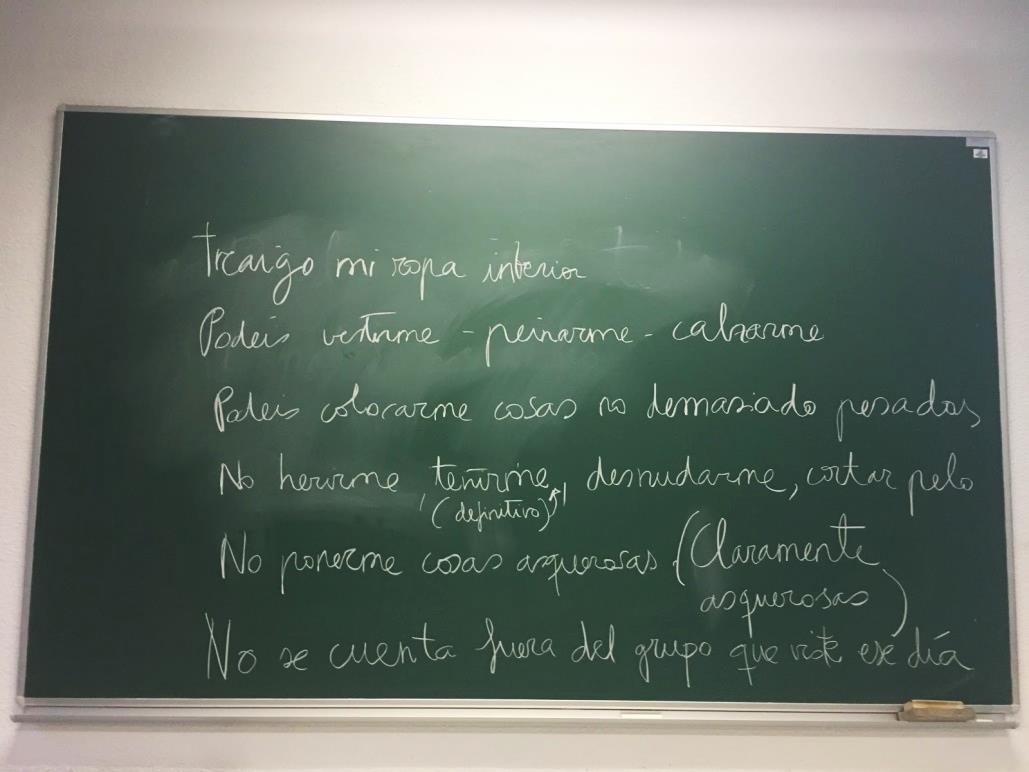 Traigo mi ropa interior
Podeis vestirme - peinarme - calzarme
Podeis colocarme cosas no demasiado pesadas
No herirme, teñirme, desnudarme, cortar pelo
(definitivo)
No ponerme cosas asquerosas (Claramente
asquerosas)
No se cuenta fuera del grupo que viste ese día